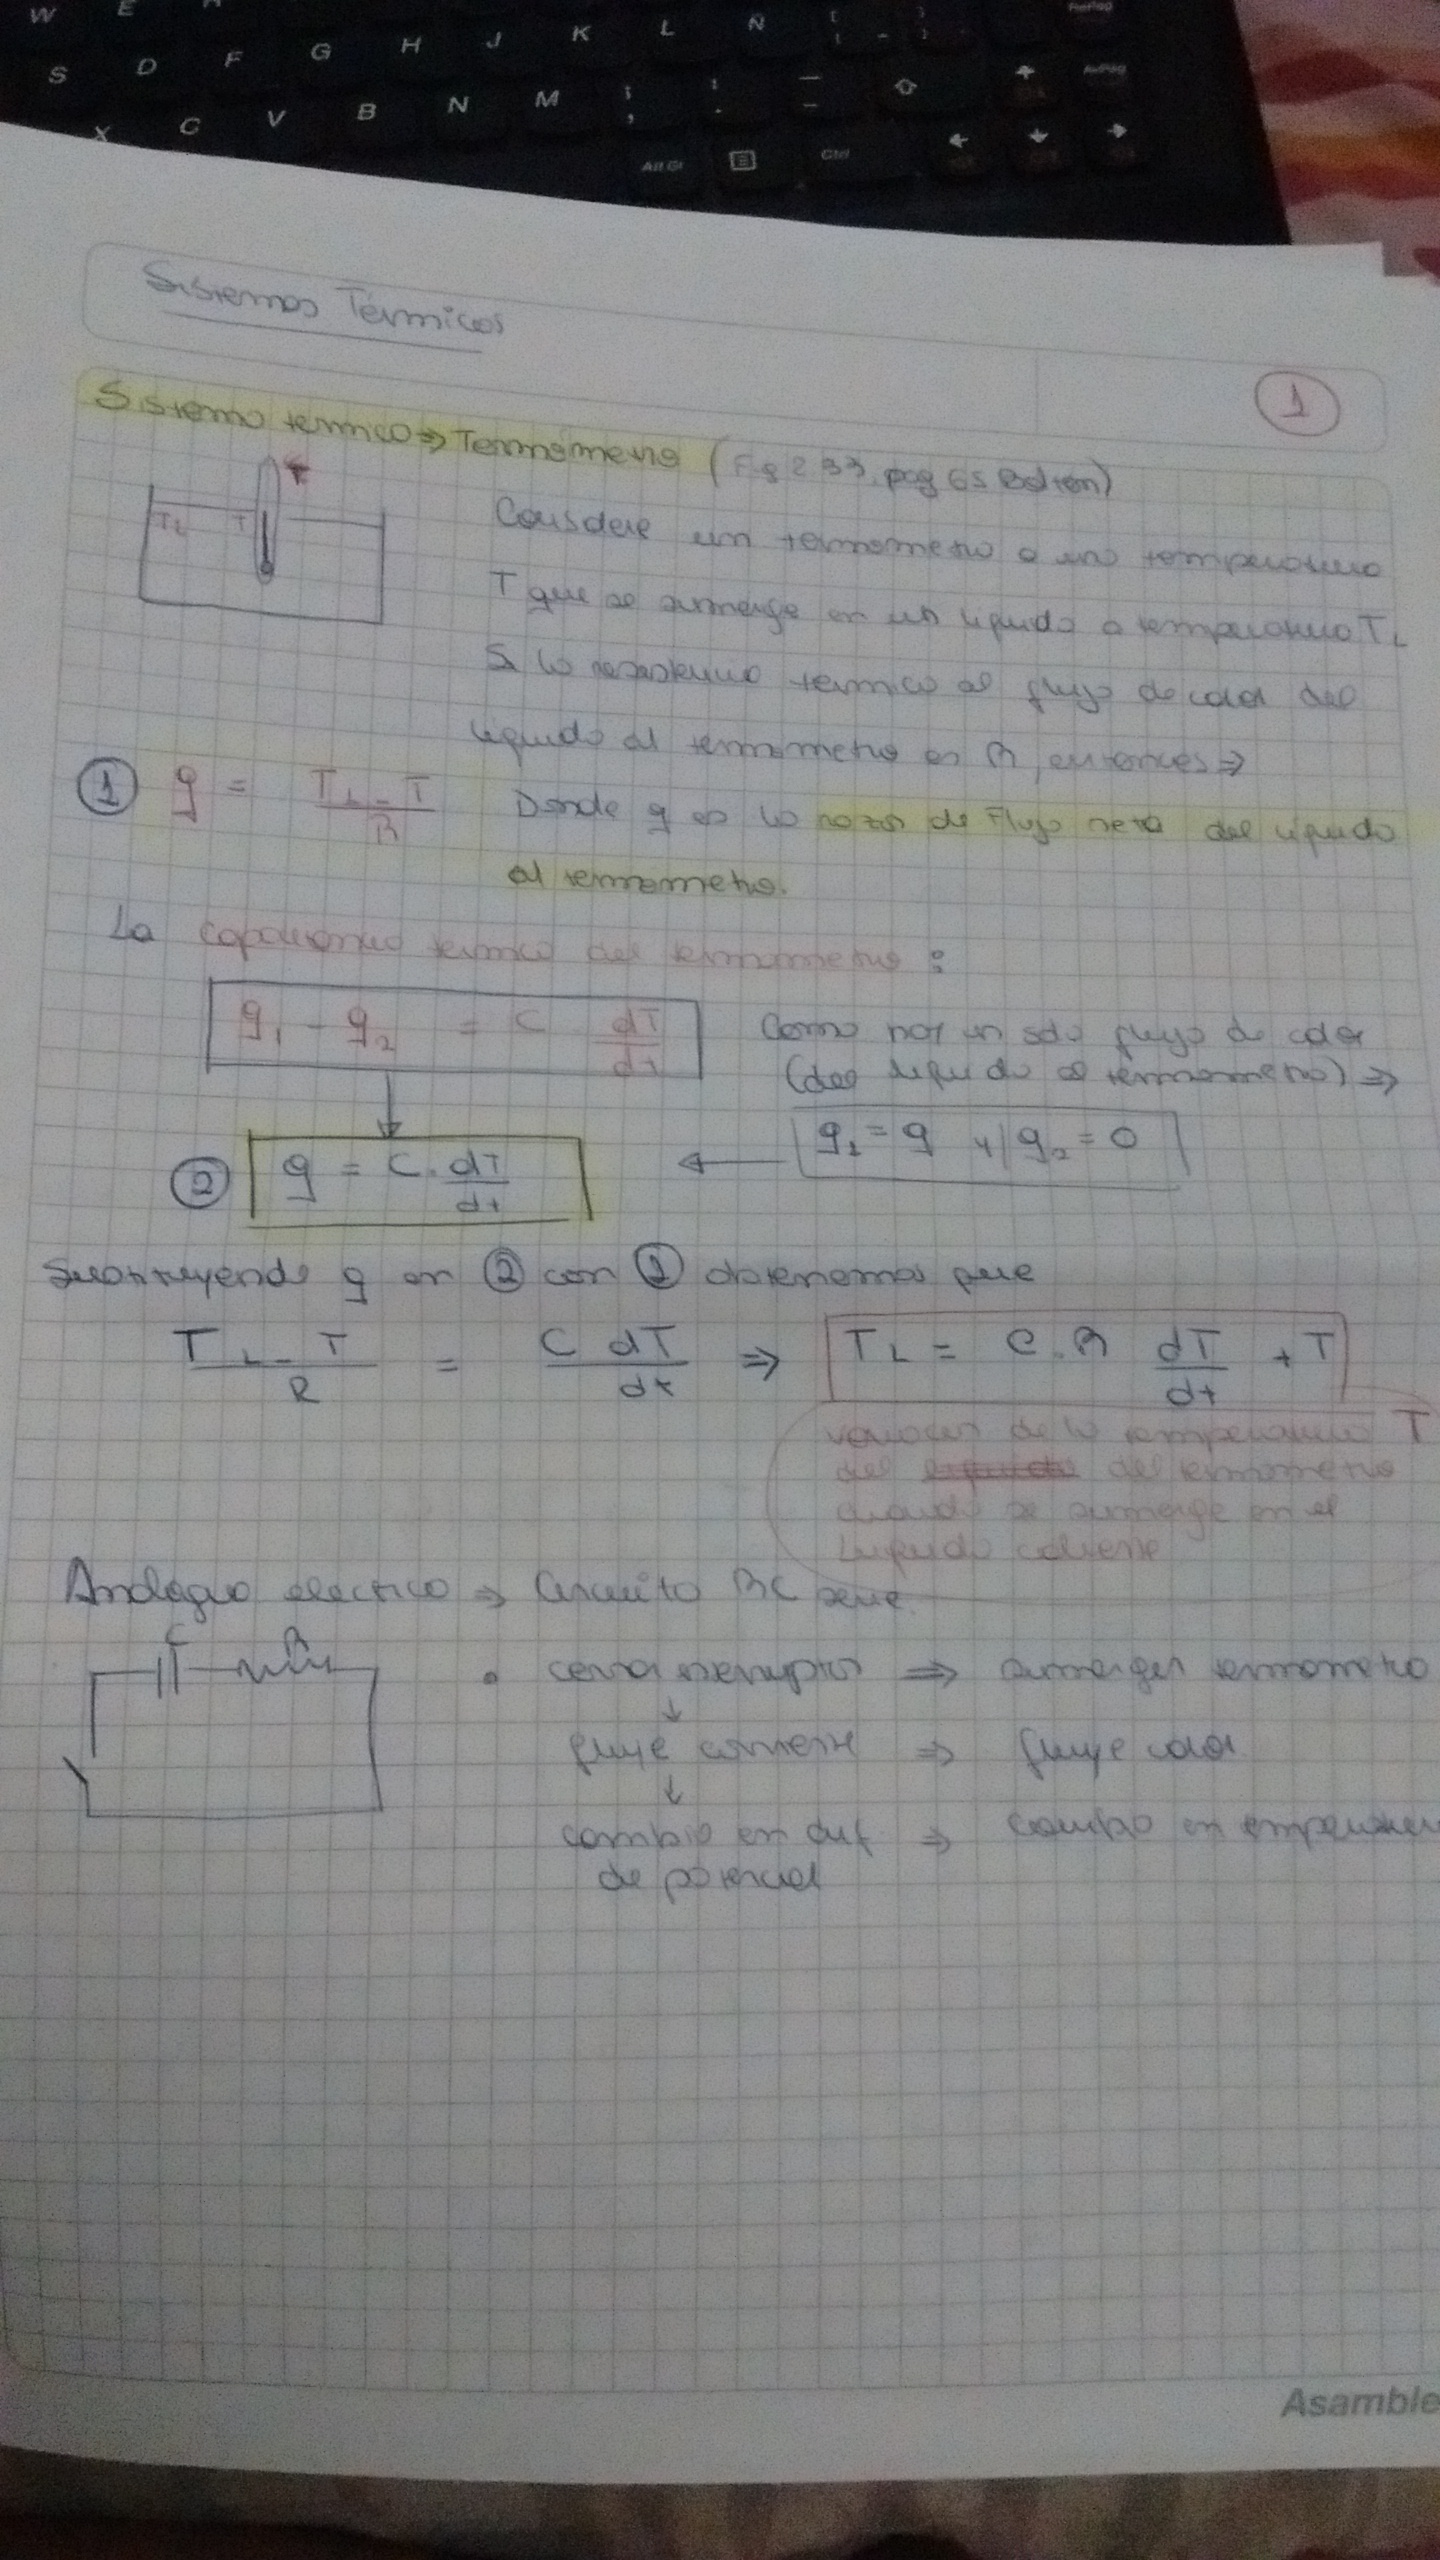 W E
S D F G H J K L Ñ
X C V B N M ; , : . - _
Alt Gr Ctrl
Sistemas Térmicos
1
Sistema termico ⇒ Termometro (Fig 2.33, pag 65 Bolton)
TL T T
Considere un termometro a una temperatura
T que se sumerge en un liquido a temperatura TL
Si la resistencia termica al flujo de calor del
liquido al termometro es R, entonces ⇒
① q = TL - T / R Donde q es la razon de Flujo neta del liquido
al termometro.
La capacitancia termica del termometro :
q1 - q2 = C dT/dt Como hay un solo flujo de calor
(del liquido al termometro) ⇒
q1 = q y q2 = 0
② q = C. dT/dt
Sustituyendo q en ② con ① obtenemos que
TL - T / R = C dT/dt ⇒ TL = C.R dT/dt + T
variacion de la temperatura T
del del termometro
cuando se sumerge en el
liquido caliente
Analogia electrica ⇒ Circuito RC serie.
C R
• cerrar interruptor ⇒ sumerger termometro
↓
fluye corriente ⇒ fluye calor
↓
cambio en dif ⇒ cambio en temperatura
de potencial
Asamble